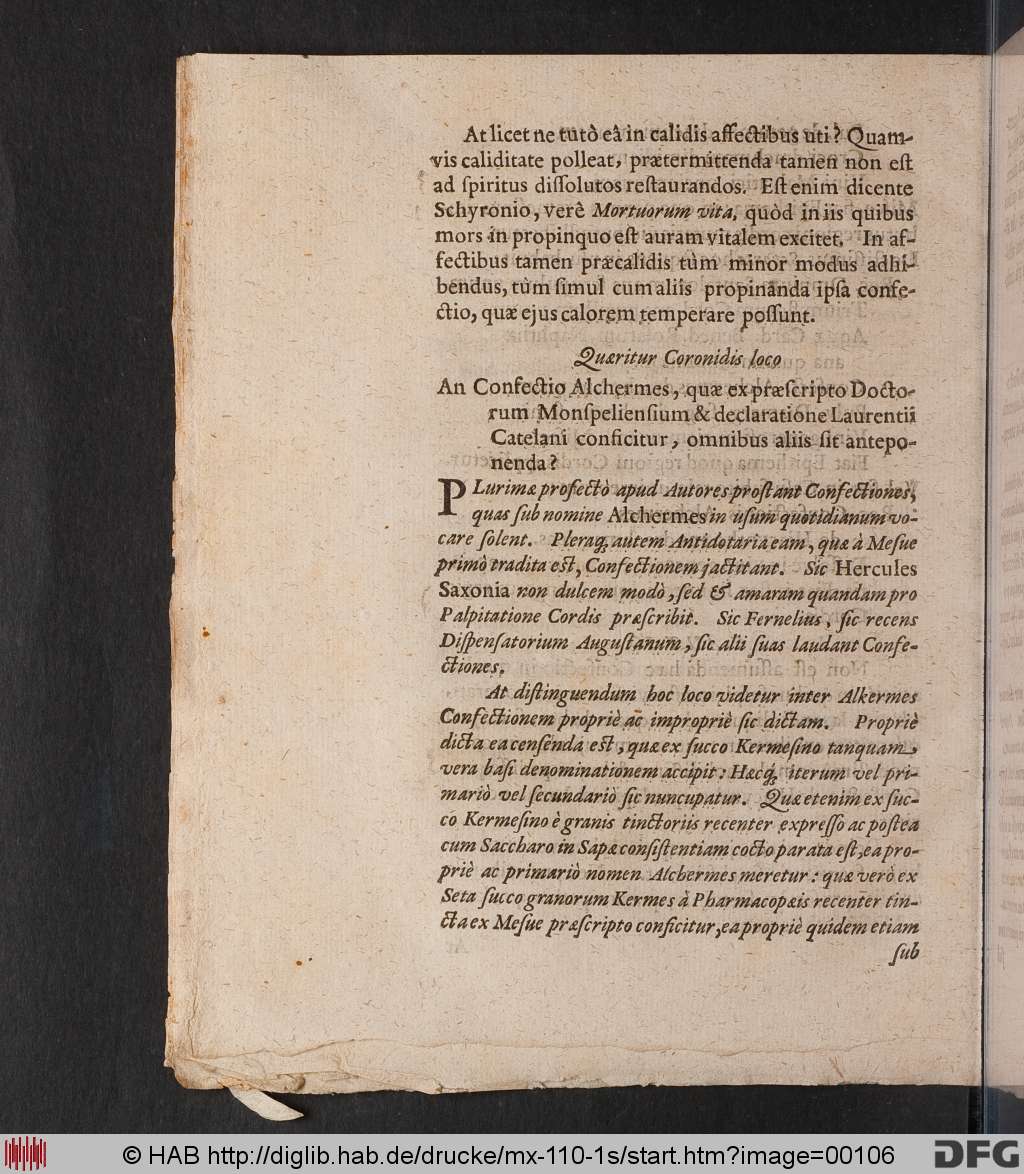 At licet ne tutò eâ in calidis affectibus uti? Quam-
vis caliditate polleat, prætermittenda tamen non est
ad spiritus dissolutos restaurandos. Est enim dicente
Schyronio, verè Mortuorum vita, quòd in iis quibus
mors in propinquo est auram vitalem excitet. In af-
fectibus tamen præcalidis tùm minor modus adhi-
bendus, tùm simul cum aliis propinanda ipsa confe-
ctio, quæ ejus calorem temperare possunt.
Quæritur Coronidis loco
An Confectio Alchermes, quæ ex præscripto Docto-
rum Monspeliensium & declaratione Laurentii
Catelani conficitur, omnibus aliis sit antepo-
nenda?
PLurimæ profectò apud Autores prostant Confectiones,
quas sub nomine Alchermes in usum quotidianum vo-
care solent. Pleraq; autem Antidotaria eam, quæ à Mesue
primò tradita est, Confectionem jactitant. Sic Hercules
Saxonia non dulcem modò, sed & amaram quandam pro
Palpitatione Cordis præscribit. Sic Fernelius, sic recens
Dispensatorium Augustanum, sic alii suas laudant Confe-
ctiones.
At distinguendum hoc loco videtur inter Alkermes
Confectionem propriè ac impropriè sic dictam. Propriè
dicta ea censenda est, quæ ex succo Kermesino tanquam
vera basi denominationem accipit: Hæcq; iterum vel pri-
mariò vel secundariò sic nuncupatur. Quæ etenim ex suc-
co Kermesino è granis tinctoriis recenter expresso ac postea
cum Saccharo in Sapæ consistentiam cocto parata est, ea pro-
priè ac primariò nomen Alchermes meretur: quæ verò ex
Seta succo granorum Kermes à Pharmacopæis recenter tin-
cta ex Mesue præscripto conficitur, ea propriè quidem etiam
sub
© HAB http://diglib.hab.de/drucke/mx-110-1s/start.htm?image=00106
DFG